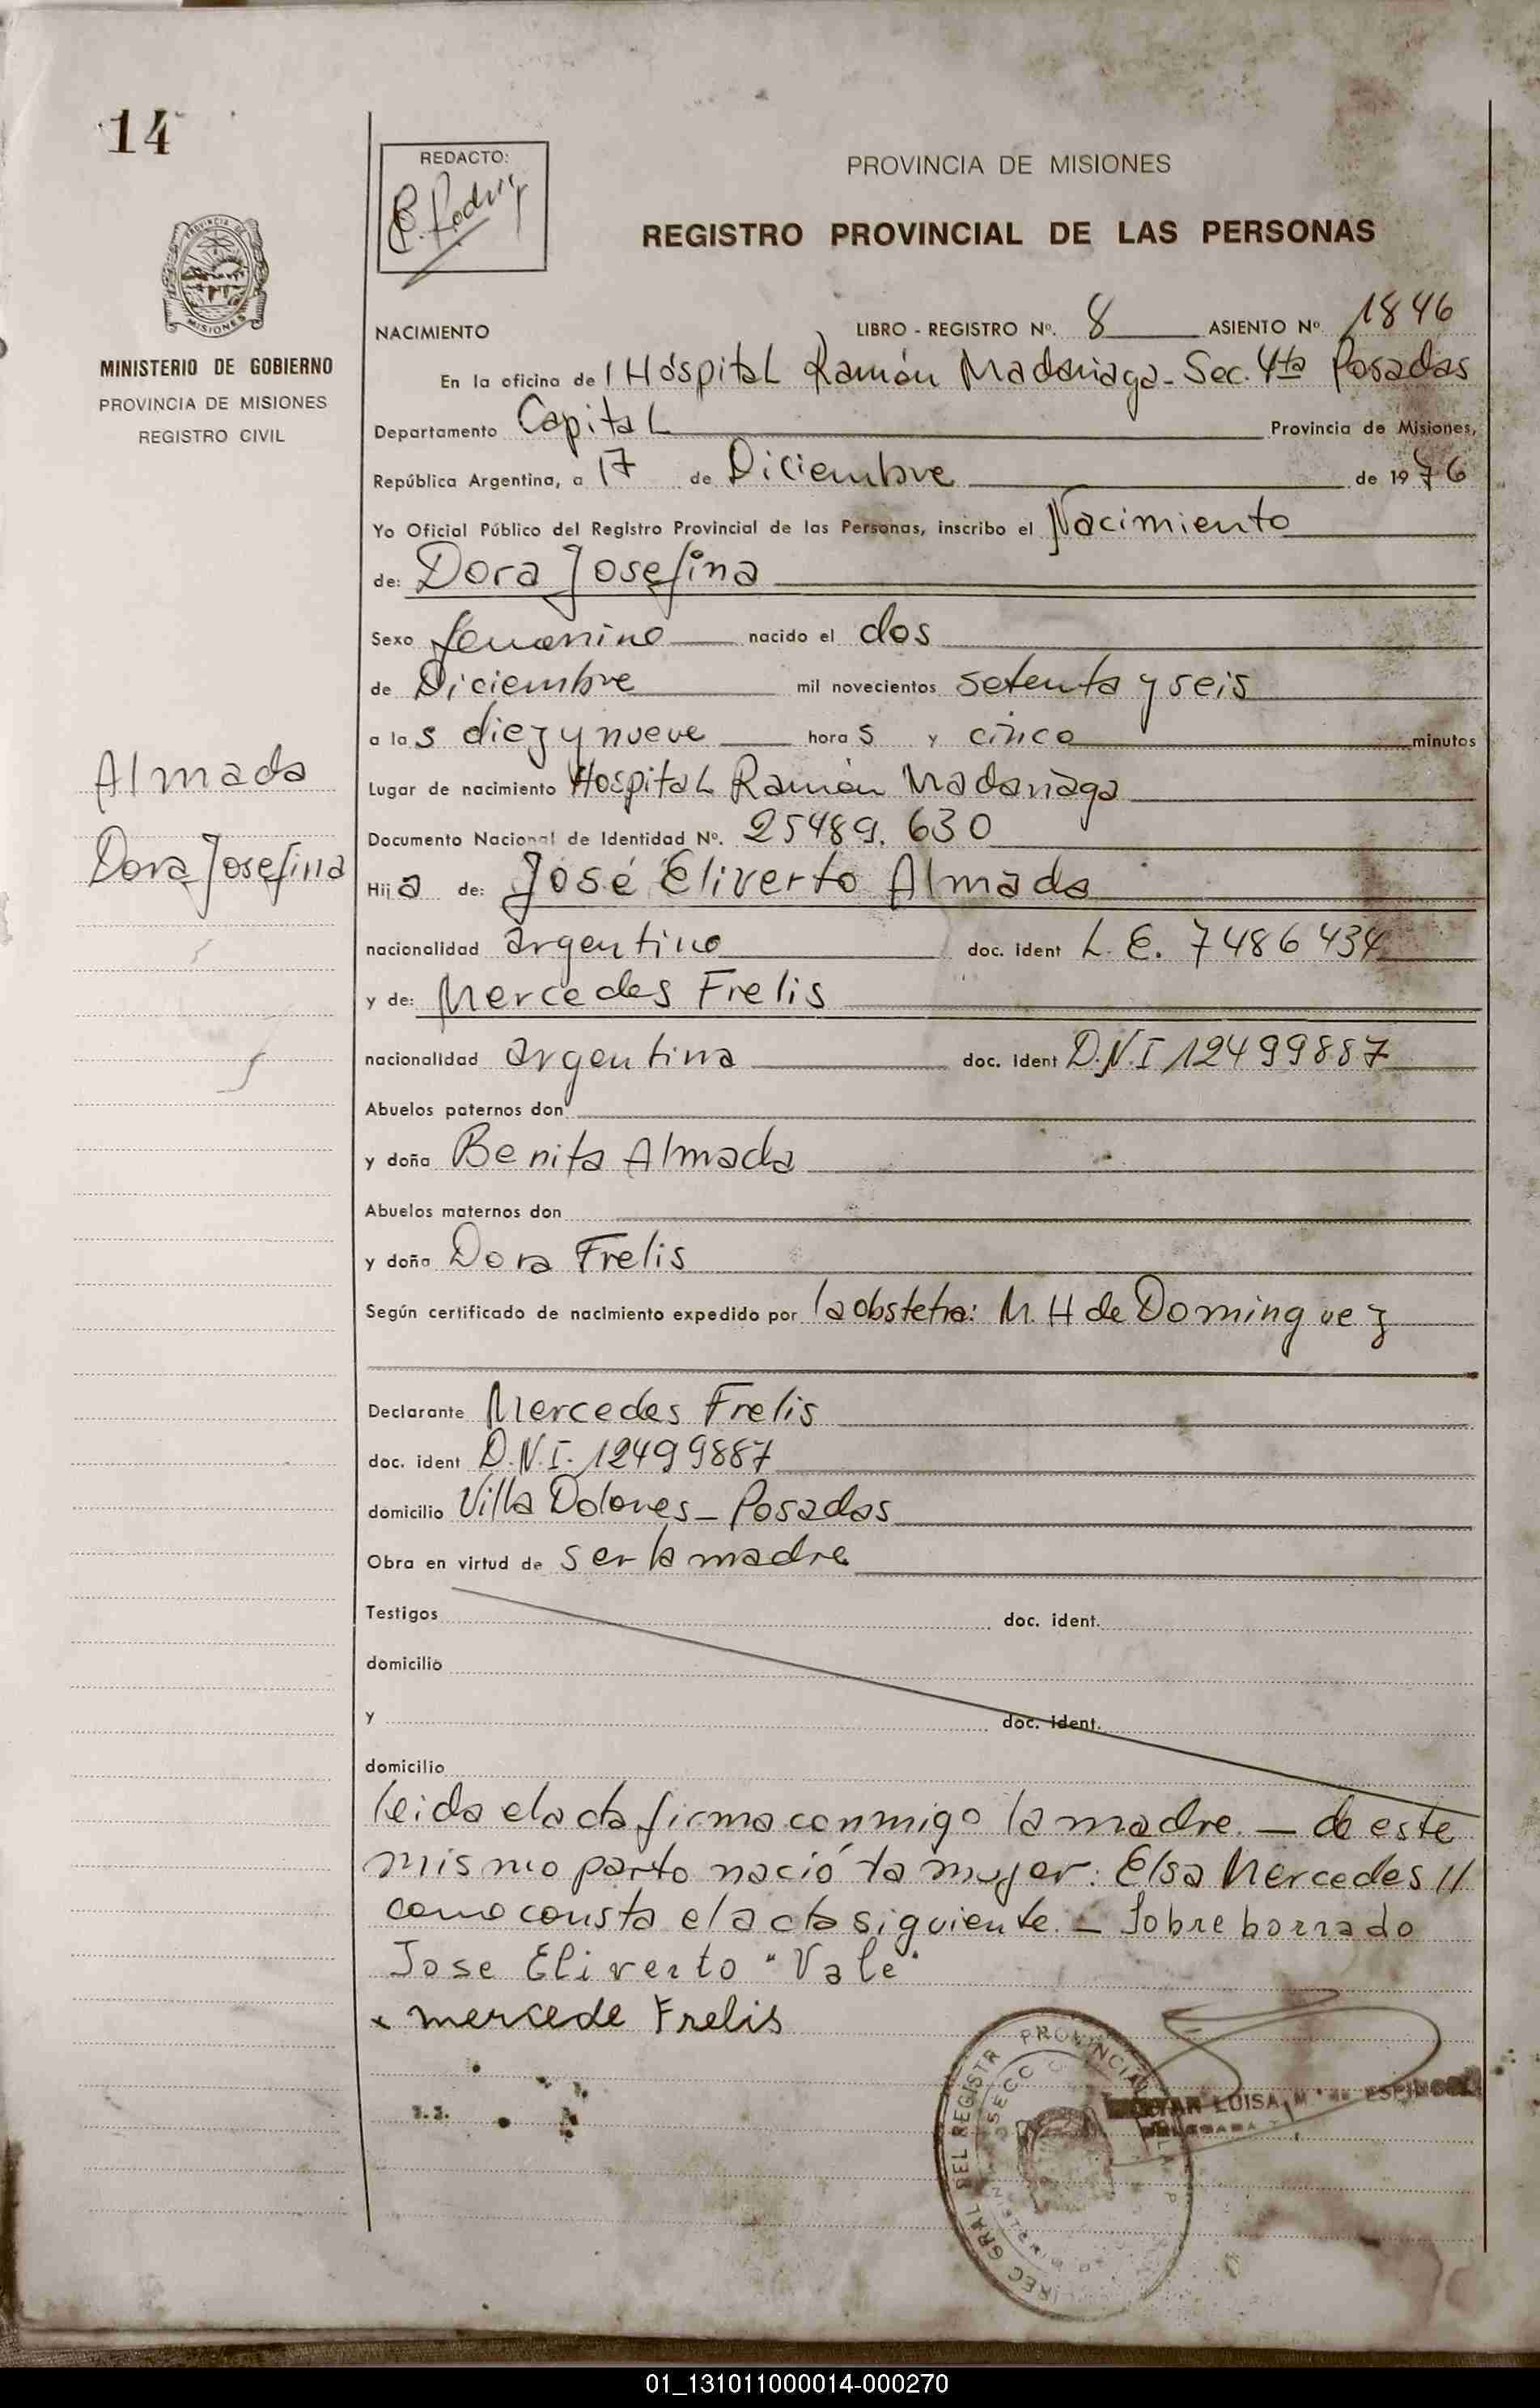 14
REDACTO:
PROVINCIA DE MISIONES
REGISTRO PROVINCIAL DE LAS PERSONAS
PROVINCIA DE
MISIONES
MINISTERIO DE GOBIERNO
PROVINCIA DE MISIONES
REGISTRO CIVIL
NACIMIENTO LIBRO - REGISTRO Nº. 8 ASIENTO Nº 1846
En la oficina del Hospital Ramón Madariaga - Sec. 4ta Posadas
Departamento Capital Provincia de Misiones,
República Argentina, a 17 de Diciembre de 1976
Yo Oficial Público del Registro Provincial de las Personas, inscribo el Nacimiento
de: Dora Josefina
Sexo femenino nacido el dos
de Diciembre mil novecientos setenta y seis
a las diez y nueve horas y cinco minutos
Lugar de nacimiento Hospital Ramón Madariaga
Documento Nacional de Identidad Nº. 25489.630
Almada
Dora Josefina
Hija de: José Eliverto Almada
nacionalidad argentino doc. ident L. E. 7486434
y de: Mercedes Frelis
nacionalidad argentina doc. ident D.N.I 12499887
Abuelos paternos don
y doña Benita Almada
Abuelos maternos don
y doña Dora Frelis
Según certificado de nacimiento expedido por la obstetra: M. H de Dominguez
Declarante Mercedes Frelis
doc. ident D.N.I. 12499887
domicilio Villa Dolores - Posadas
Obra en virtud de ser la madre
Testigos doc. ident.
domicilio
y doc. ident.
domicilio
leida el acta firma conmigo la madre. — de este
mismo parto nació la mujer: Elsa Mercedes //
como consta el acta siguiente. - Sobre borrado
Jose Eliverto "Vale"
x mercede Frelis
PROVINCIAL
LUISA M. de ESPINOSA
01_131011000014-000270